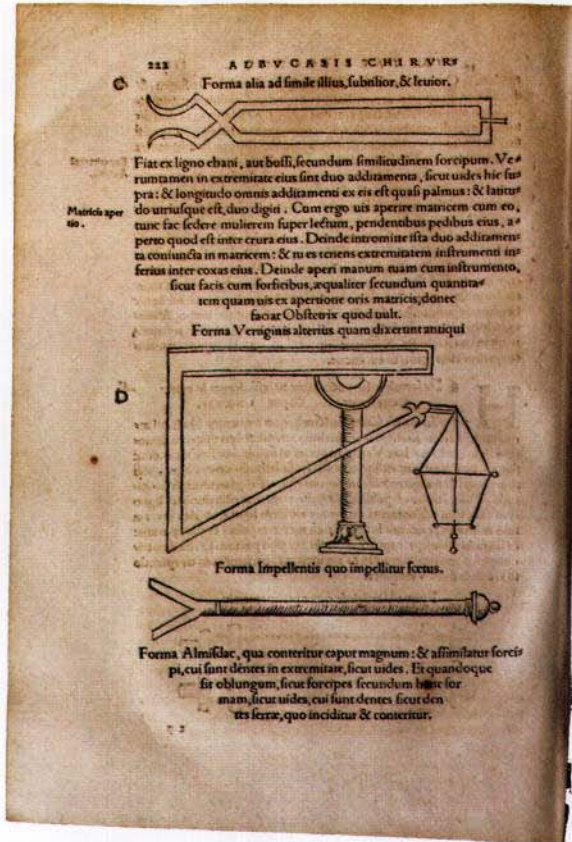 222 ADBVCASIS CHIRVR⸗
C
Forma alia ad simile illius, subtilior, & leuior.
Fiat ex ligno ebani, aut bussi, secundum similitudinem forcipum. Ve⸗
runtamen in extremitate eius sint duo additamenta, sicut uides hic su⸗
pra: & longitudo omnis additamenti ex eis est quasi palmus: & latitu⸗
Matricis aper
tio.
do utriusque est, duo digiti. Cum ergo uis aperire matricem cum eo,
tunc fac sedere mulierem super lectum, pendentibus pedibus eius, a⸗
perto quod est inter crura eius. Deinde intromitte ista duo additamen⸗
ta coniuncta in matricem: & tu es tenens extremitatem instrumenti in⸗
ferius inter coxas eius. Deinde aperi manum tuam cum instrumento,
sicut facis cum forficibus, æqualiter secundum quantita⸗
tem quam uis ex apertione oris matricis, donec
faciat Obstetrix quod uult.
Forma Vertiginis alterius quam dixerunt antiqui
D
Forma Impellentis quo impellitur fœtus.
Forma Almisdac, qua conteritur caput magnum: & assimilatur forci⸗
pi, cui sunt dentes in extremitate, sicut uides. Et quandoque
fit oblungum, sicut forcipes secundum hanc for
mam, sicut uides, cui sunt dentes sicut den
tes serræ, quo inciditur & conteritur.